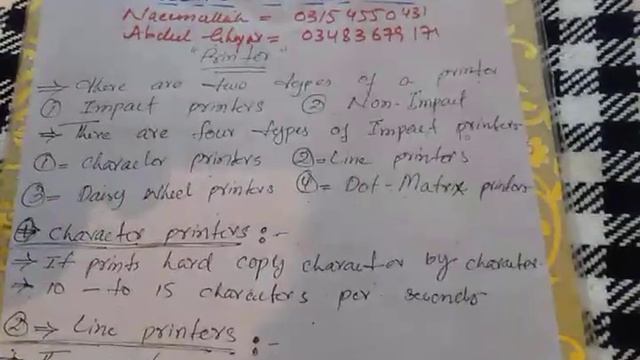 Naeemullah = 03154550431
Abdul Ghayor = 03483679171
"Printer"
⇒ There are two types of a printer
① Impact printers ② Non-Impact
⇒ There are four types of Impact printers
①= Character printers ②= Line printers
③= Daisy wheel printers ④= Dot-Matrix printers
① Character printers :-
→ It prints hard copy character by character.
→ 10 - to 15 characters per seconds
② ⇒ Line printers :-